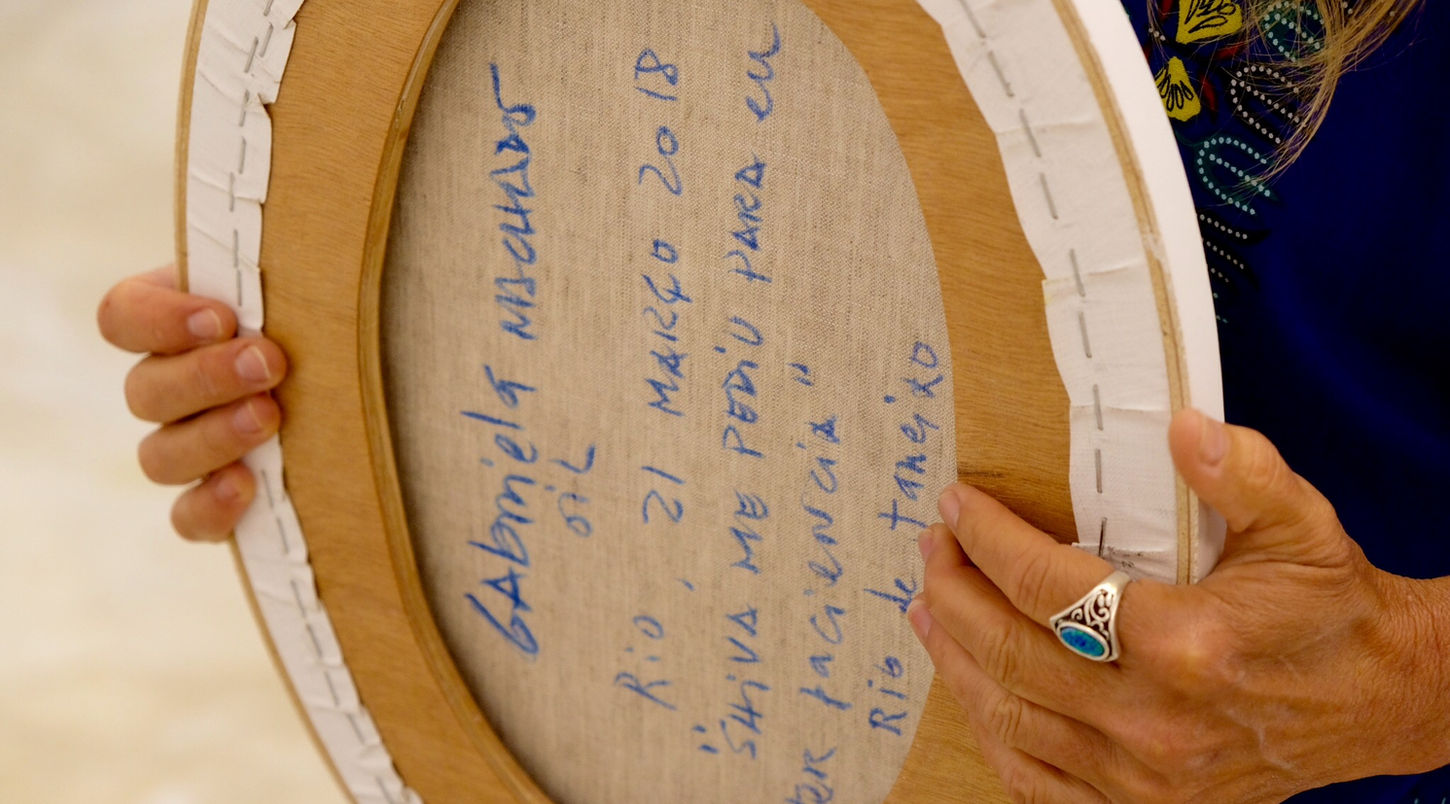 GAbriela MACHADO
OiL
Rio, 21 MARÇO 2018
"SHIVA ME PEDIU PARA EU
tER PACiENCiA"
Rio de Janeiro